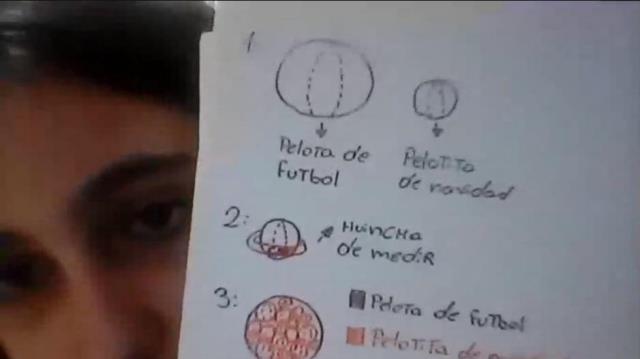 1.
Pelota de
Futbol
Pelotita
de navidad
2:
Huincha
de mediR
3:
Pelota de Futbol
Pelotita de